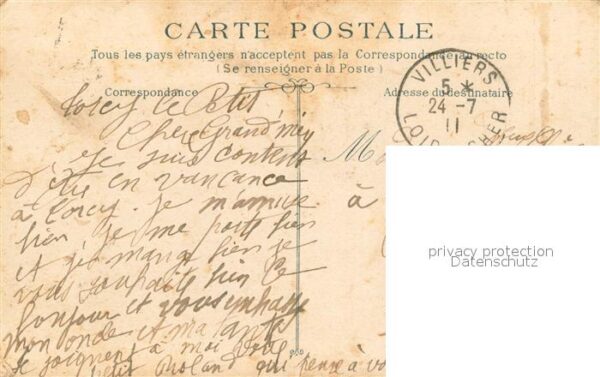 CARTE POSTALE
Tous les pays étrangers n'acceptent pas la Correspondance au recto
(Se renseigner à la Poste)
Correspondance
Adresse du destinataire
VILLIERS
5 *
24 -7
11
LOIR CHER
Torcy le Petit
Cher Grand'mèr
Je suis contens
d'être en vancance
à Torcy. Je m'amuse
bien, je me porte bien
et je mange bien je
vous souhaite bien le
bonjour et vous embrasse
mon oncle et ma tante
se joignent à moi
petit Roland qui pense à vo
M
à
privacy protection
Datenschutz